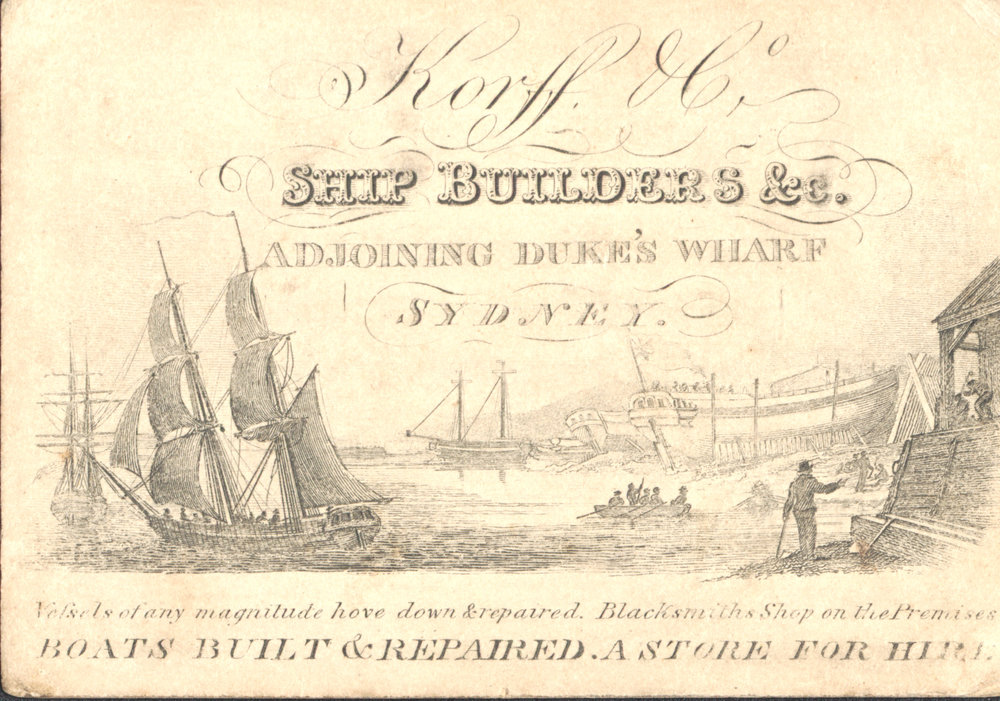 Korff. & Co,
SHIP BUILDERS &c.
ADJOINING DUKE'S WHARF
SYDNEY.
Veſsels of any magnitude hove down & repaired. Blacksmiths Shop on the Premises
BOATS BUILT & REPAIRED. A STORE FOR HIRE